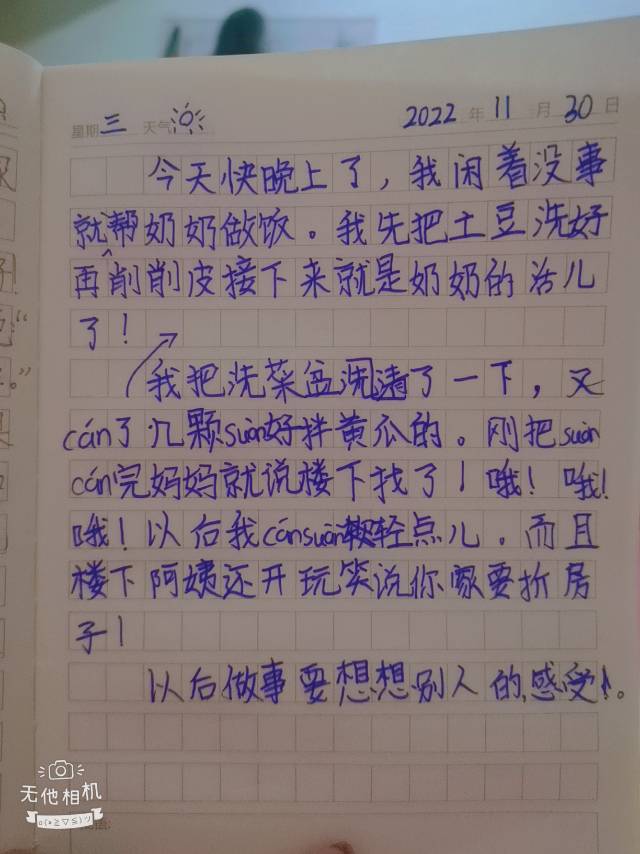 星期三 天气 2022年11月30日
今天快晚上了，我闲着没事
就帮奶奶做饭。我先把土豆洗好
再削削皮接下来就是奶奶的活儿
了！
我把洗菜盆洗清了一下，又
cán了几颗suàn好拌黄瓜的。刚把suàn
cán完妈妈就说楼下找了！哦！哦！
哦！以后我cánsuàn轻点儿。而且
楼下阿姨还开玩笑说你家要折房
子！
以后做事要想想别人的感受！。
无他相机